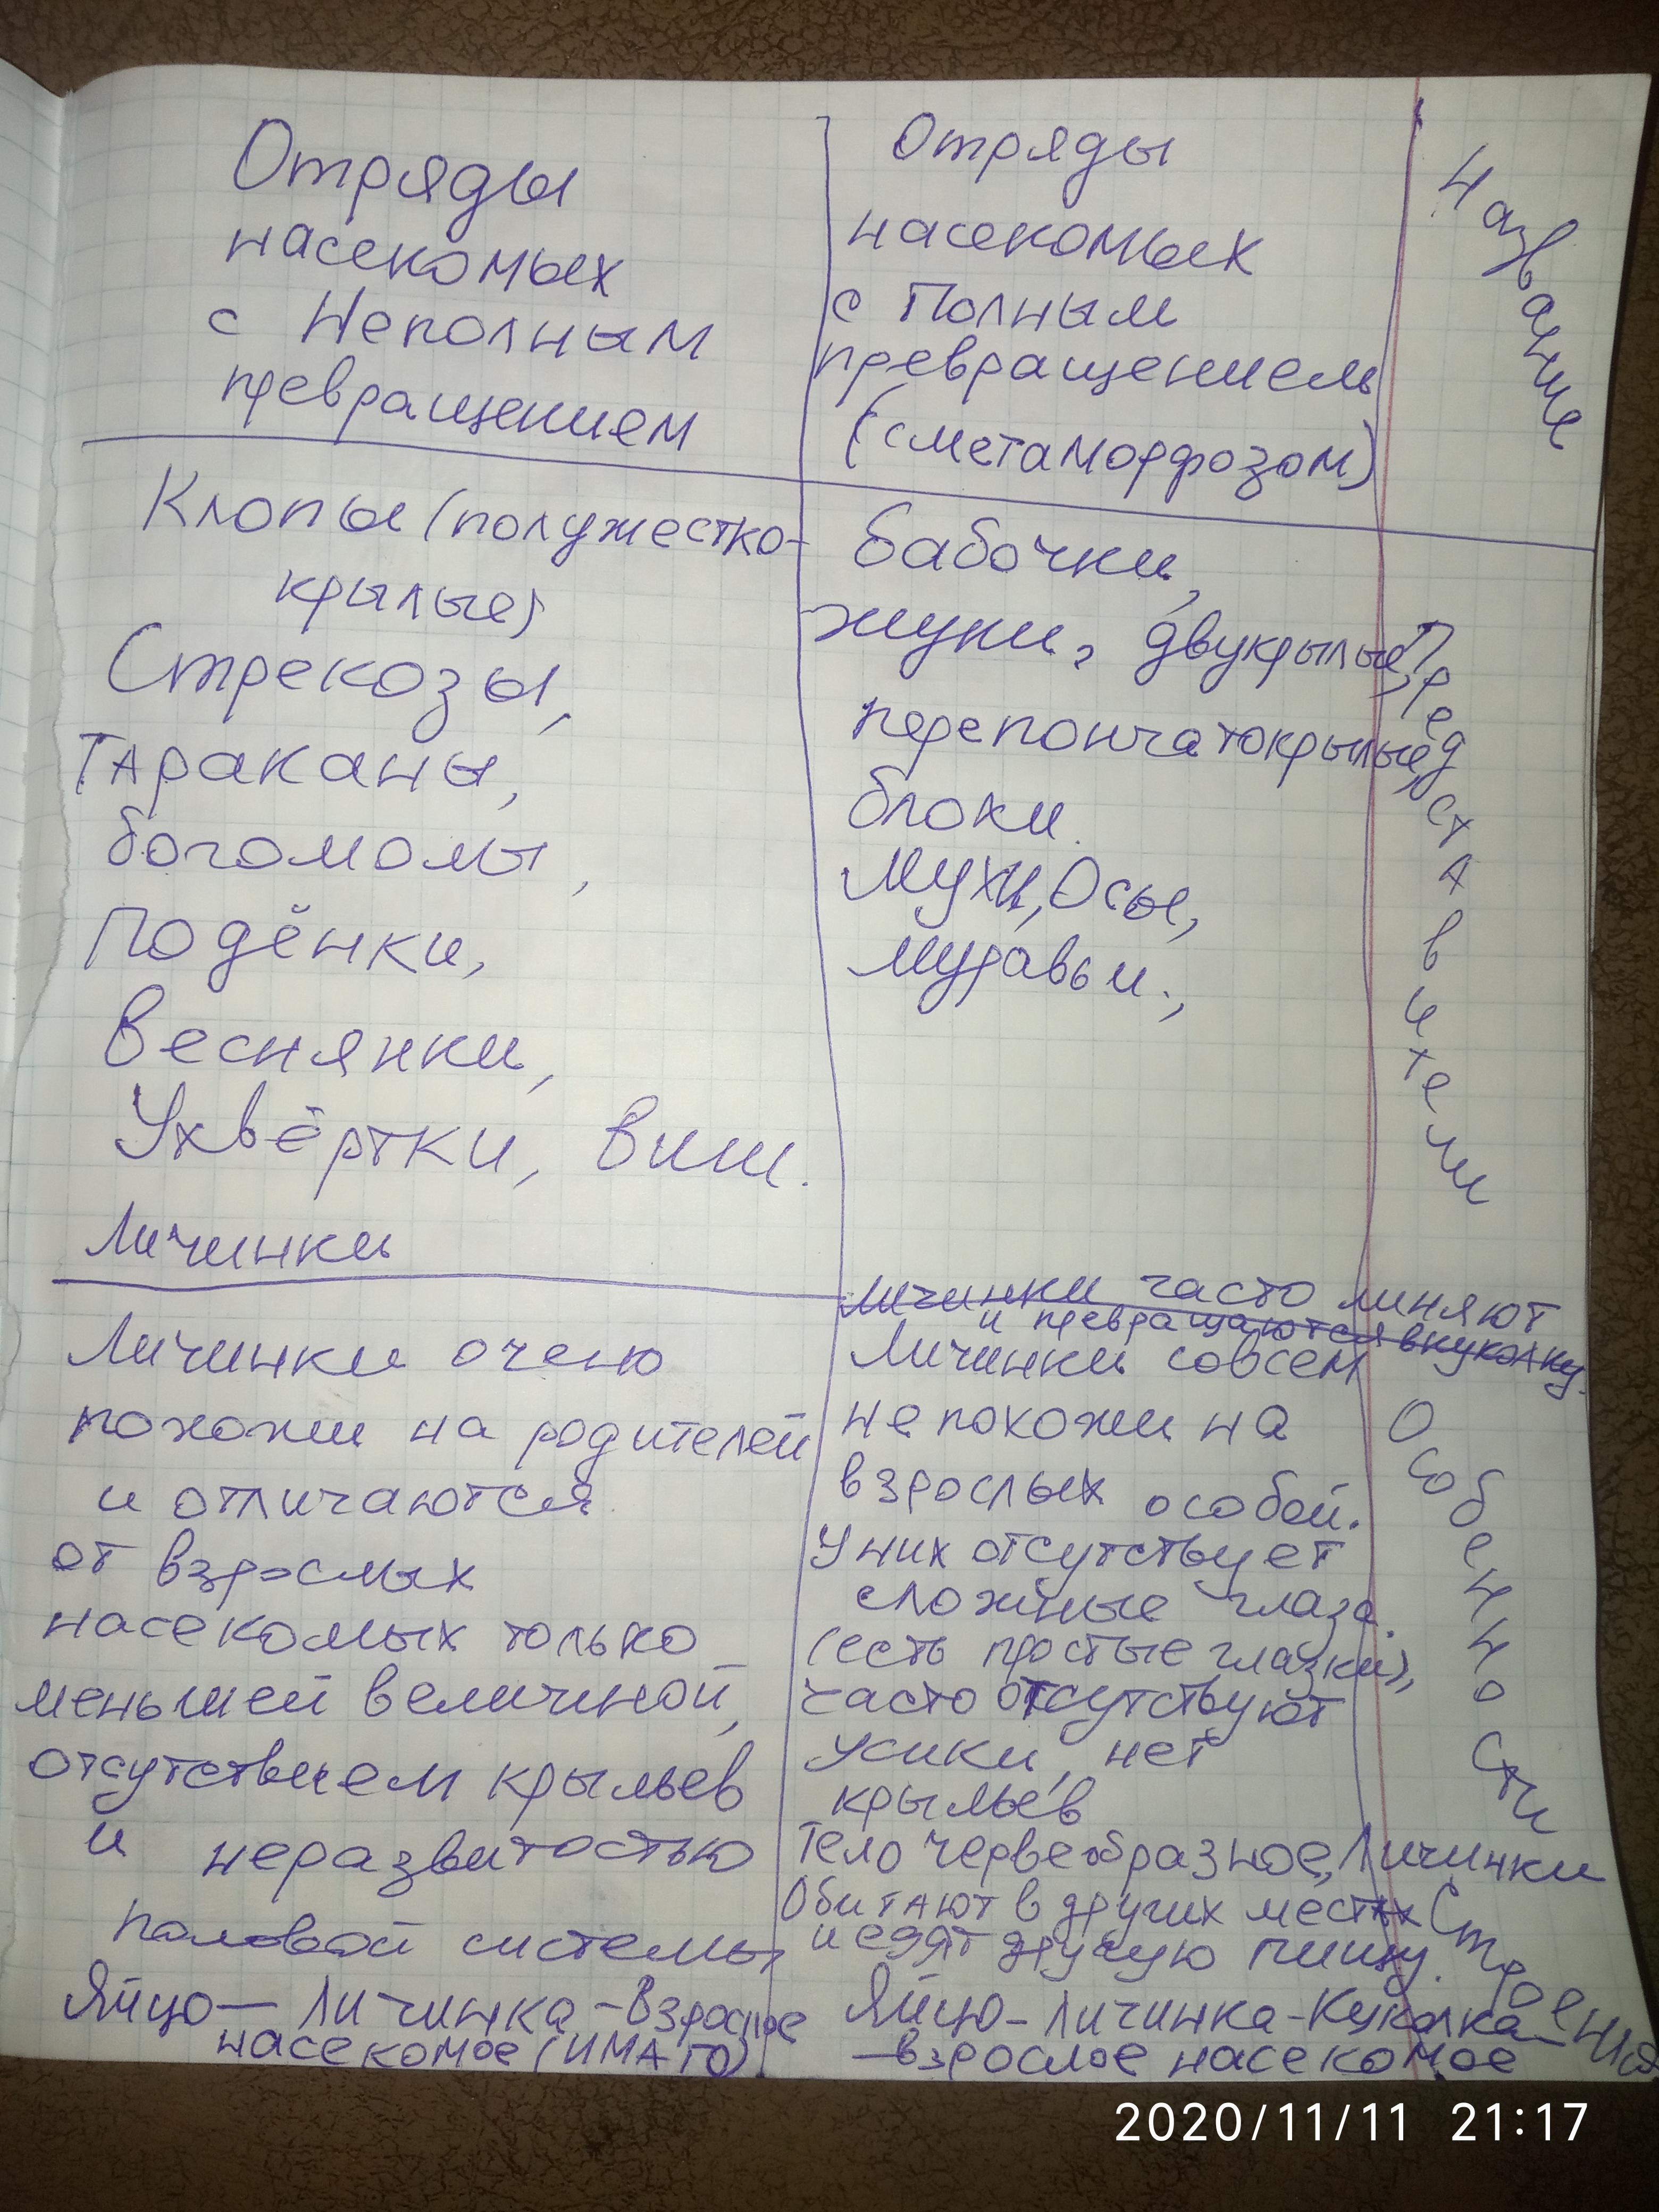 Отряды
насекомых
с Неполным
превращением
Отряды
насекомых
с Полным
превращением
(с метаморфозом)
Название
Клопы (полужестко-
крылые)
Стрекозы,
Тараканы,
богомолы,
Подёнки,
Веснянки,
Ухвёртки, Вши.
Бабочки,
жуки, двукрылые,
перепончатокрылые,
блохи.
Мухи, Осы,
муравьи.,
Представители
Личинки
Личинки очень
похожи на родителей
и отличаются
от взрослых
насекомых только
меньшей величиной,
отсутствием крыльев
и неразвитостью
половой системы
Личинки часто линяют
и превращаются в куколку.
Личинки совсем
не похожи на
взрослых особой.
У них отсутствует
сложные глаза.
(есть простые глазки),
часто отсутствуют
усики, нет
крыльев
Тело червеобразное, Личинки
Обитают в других местах
и едят другую пищу.
Особенности
Строения
Яйцо — Личинка - Взрослое
насекомое (ИМАГО)
Яйцо - Личинка - Куколка -
- взрослое насекомое
2020/11/11 21:17